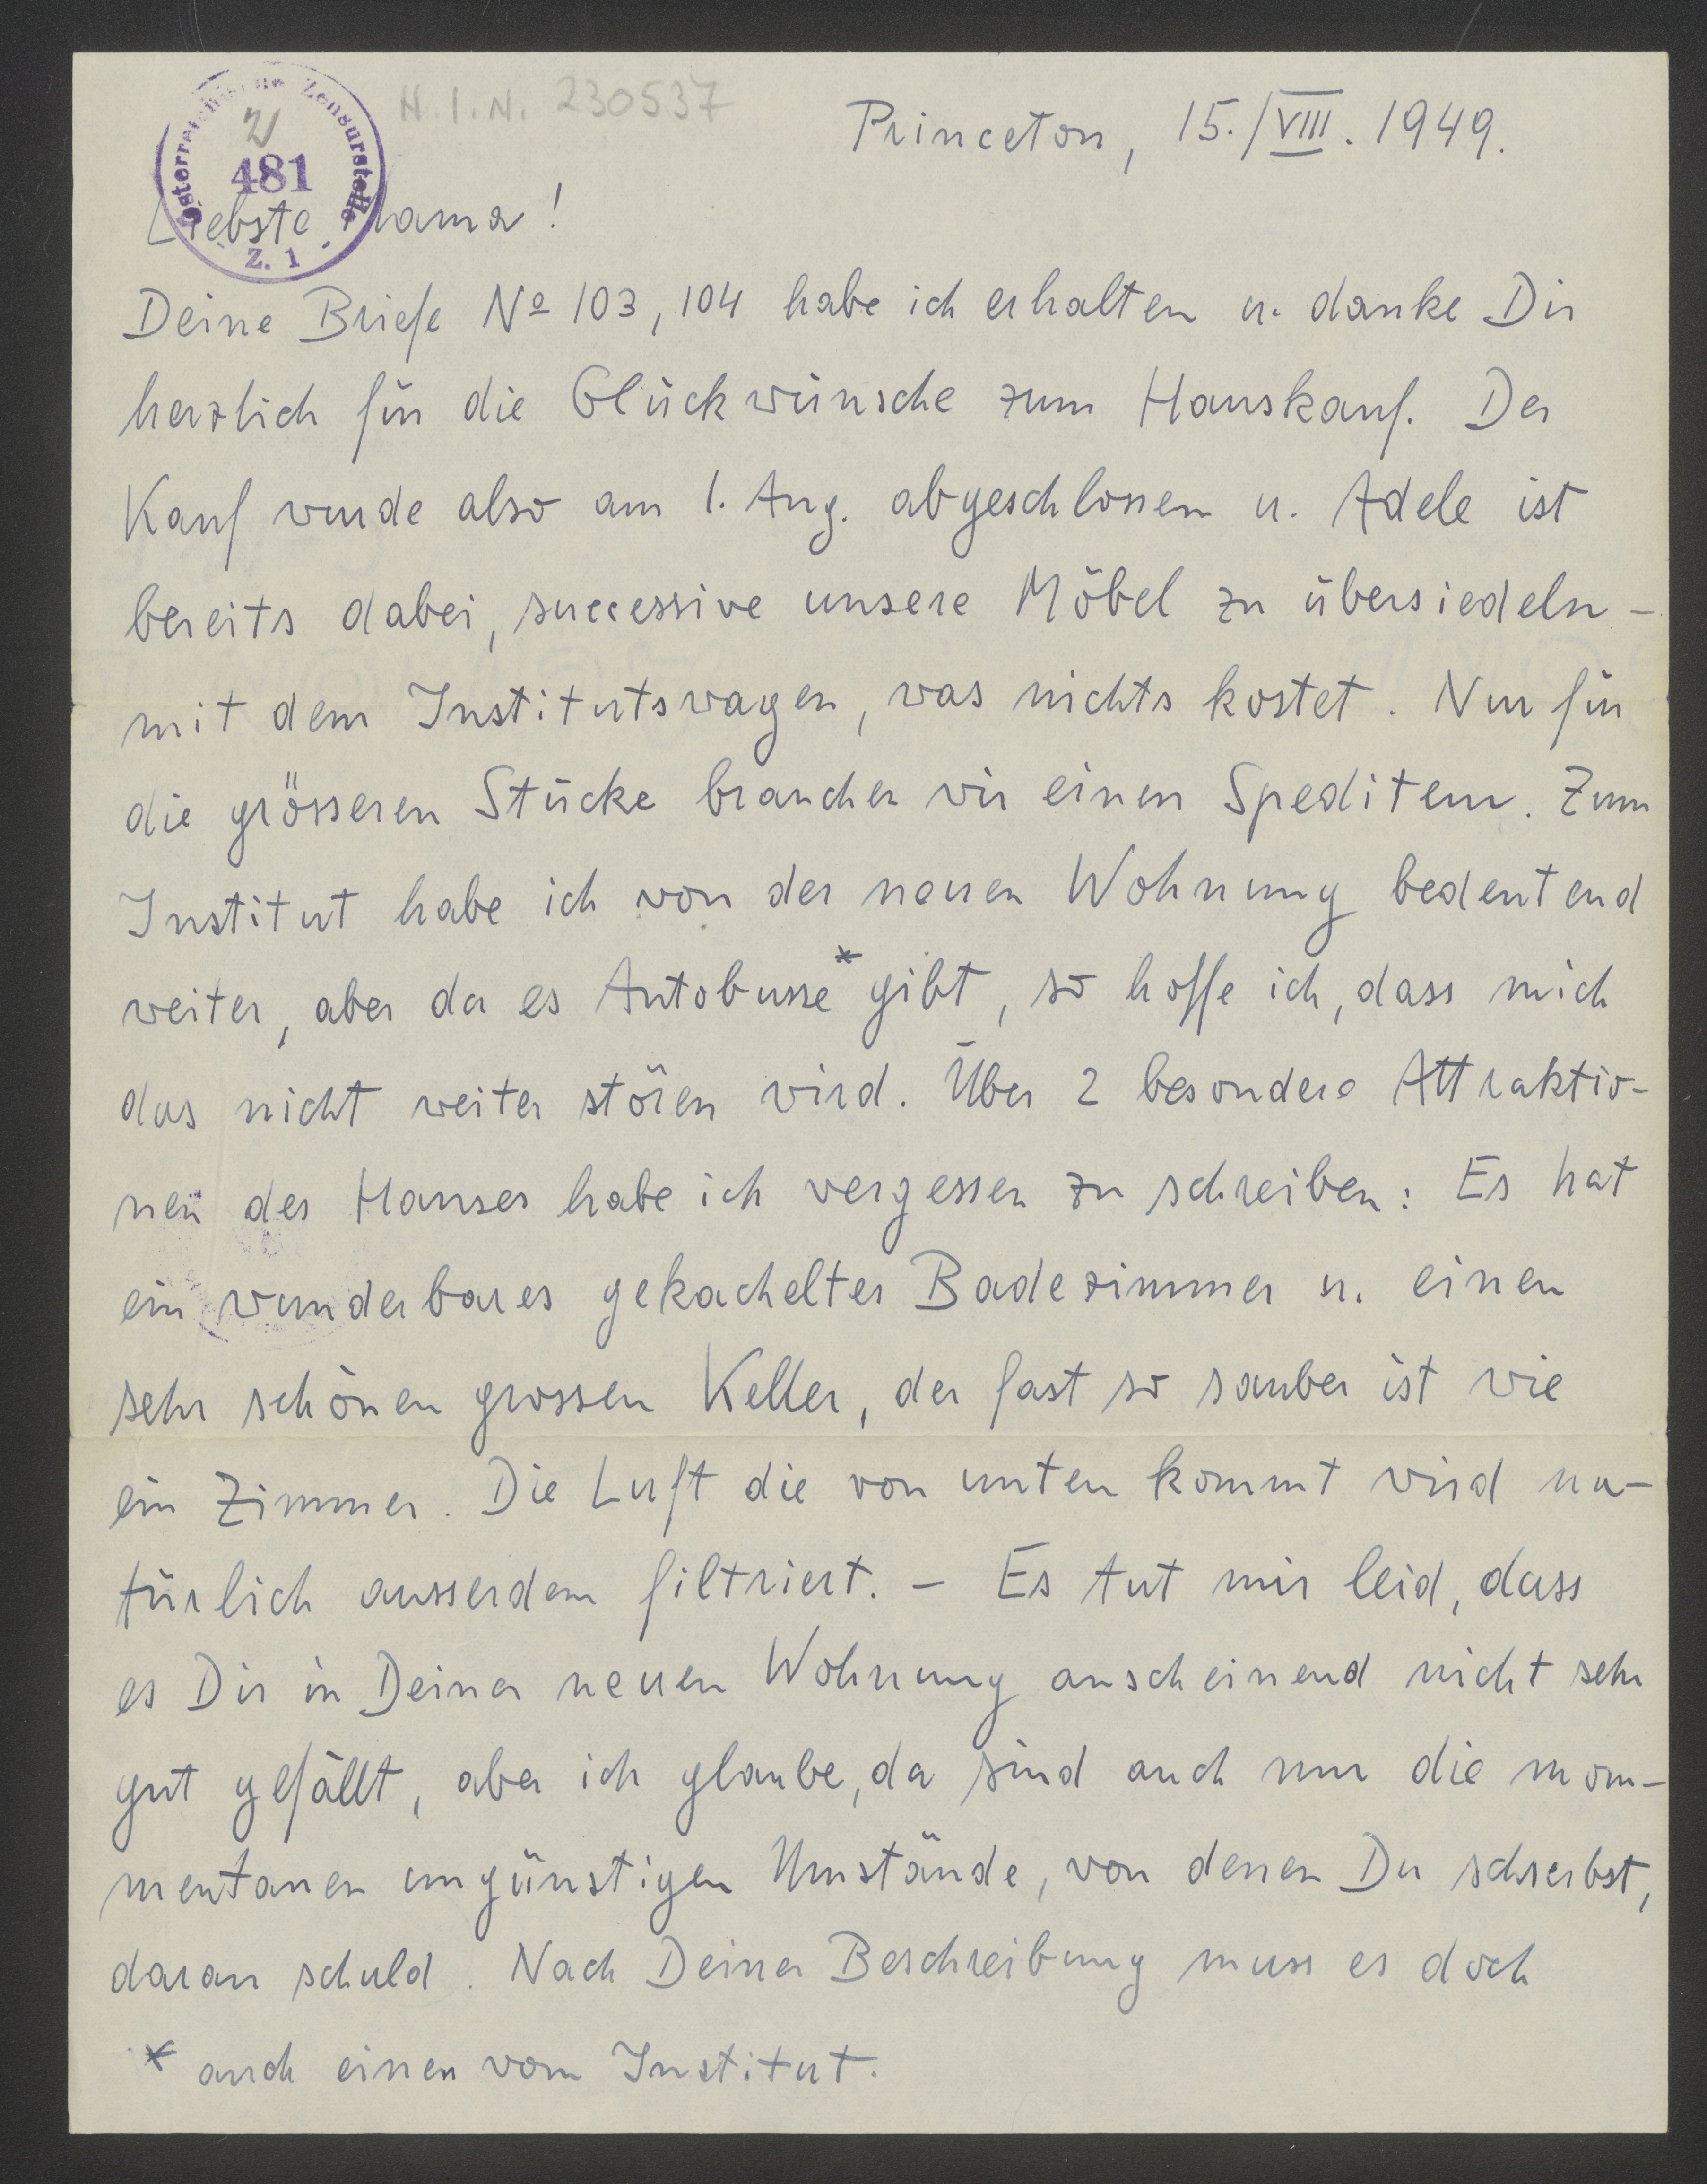 H.I.N. 230537
Österreichische Zensurstelle
2
481
Z. 1
Princeton, 15./VIII. 1949.
Liebste Mama!
Deine Briefe Nº 103, 104 habe ich erhalten u. danke Dir
herzlich für die Glückwünsche zum Hauskauf. Der
Kauf wurde also am 1. Aug. abgeschlossen u. Adele ist
bereits dabei, successive unsere Möbel zu übersiedeln –
mit dem Institutswagen, was nichts kostet. Nur für
die grösseren Stücke brauchen wir einen Spediteur. Zum
Institut habe ich von der neuen Wohnung bedeutend
weiter, aber da es Autobusse* gibt, so hoffe ich, dass mich
das nicht weiter stören wird. Über 2 besondere Attraktio-
nen des Hauses habe ich vergessen zu schreiben: Es hat
ein wunderbares gekacheltes Badezimmer u. einen
sehr schönen grossen Keller, der fast so sauber ist wie
ein Zimmer. Die Luft die von unten kommt wird na-
türlich ausserdem filtriert. – Es tut mir leid, dass
es Dir in Deiner neuen Wohnung anscheinend nicht sehr
gut gefällt, aber ich glaube, da sind auch nur die mom-
mentanen ungünstigen Umstände, von denen Du schreibst,
daran schuld. Nach Deiner Beschreibung muss es doch
* auch einen vom Institut.